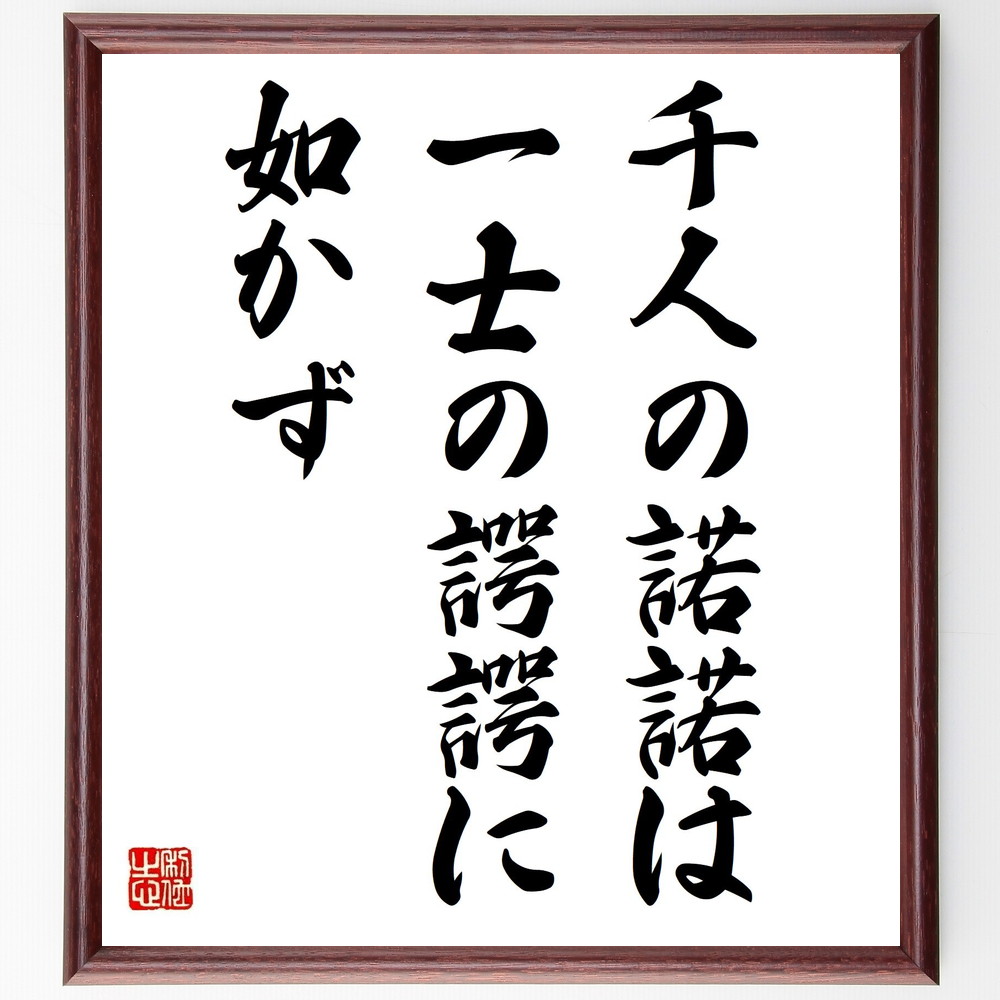 千人の諾諾は
一士の諤諤に
如かず